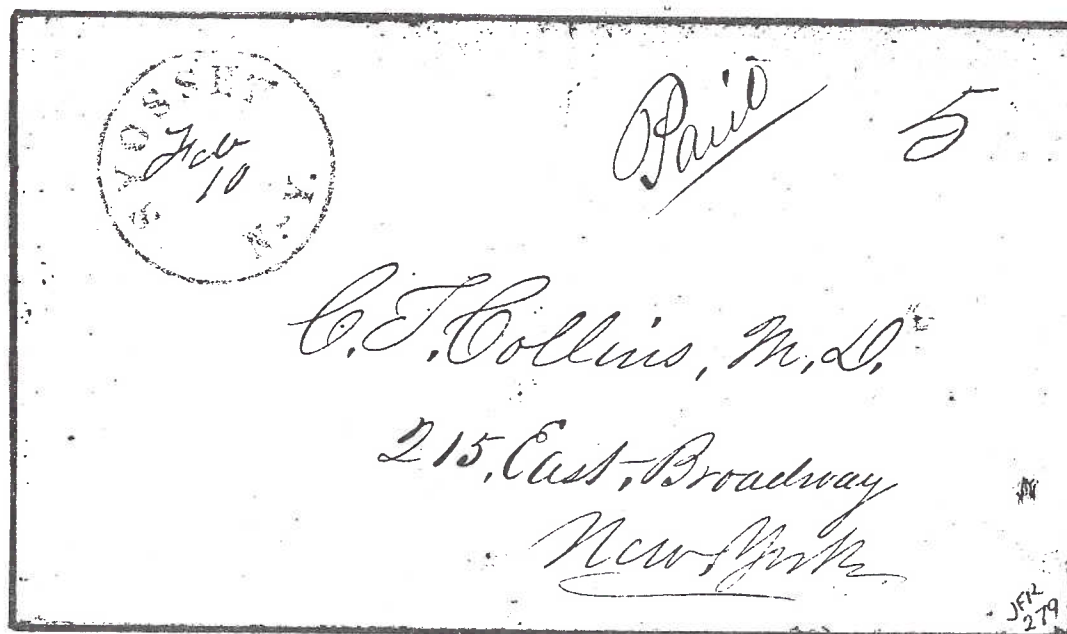 SYOSSET
Feb
10
N.Y.
Paid 5
C. T. Collins, M.D.
215, East, Broadway
New, York
279